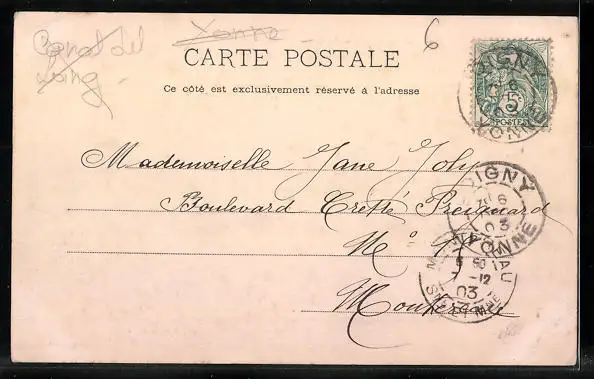 Canal du
Loing
Yonne
6
CARTE POSTALE
Ce côté est exclusivement réservé à l'adresse
5
POSTES
VIGNY
YONNE
Mademoiselle Jane Joly
Boulevard
VIGNY
6
03
YONNE
No
7 -12
03
Montereau